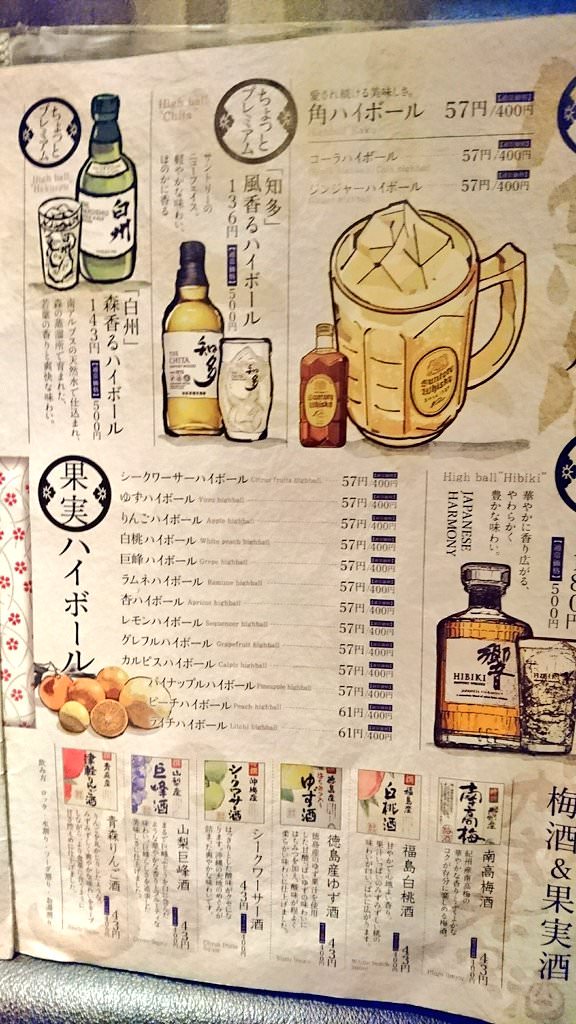 愛され続ける美味しさ。
角ハイボール 57円/400円
コーラハイボール 57円/400円
ジンジャーハイボール 57円/400円
Suntory
Whisky
ちょっと
プレミアム
High ball
"Chita"
「知多」
風香るハイボール
136円【通常価格】500円
サントリーの
ニューフェイス。
軽やかな味わい。
ほのかに香る
THE
CHITA
知多
ちょっと
プレミアム
High ball
白州
「白州」
森香るハイボール
143円【通常価格】500円
南アルプスの天然水で仕込まれ、
森の蒸溜所で育まれた、
若葉の香りと爽快な味わい。
果実ハイボール
シークワーサーハイボール Citrus fruits highball 57円/400円
ゆずハイボール Yuzu highball 57円/400円
りんごハイボール Apple highball 57円/400円
白桃ハイボール White peach highball 57円/400円
巨峰ハイボール Grape highball 57円/400円
ラムネハイボール Ramune highball 57円/400円
杏ハイボール Apricot highball 57円/400円
レモンハイボール Sequencer highball 57円/400円
グレフルハイボール Grapefruit highball 57円/400円
カルピスハイボール Calpis highball 57円/400円
パイナップルハイボール Pineapple highball 57円/400円
ピーチハイボール Peach highball 61円/400円
ライチハイボール Litchi highball 61円/400円
High ball "Hibiki"
180円
【通常価格】500円
華やかに香り広がる、
やわらかく
豊かな味わい。
JAPANESE
HARMONY
響
HIBIKI
梅酒&果実酒
南高梅
南高梅酒 43円
400円
紀州産南高梅の
華やかな香りとまろやかな
コクが存分に楽しめる梅酒。
福島産
白桃酒
福島白桃酒 43円
400円
徳島産
ゆず酒
徳島産ゆず酒 43円
400円
徳島産のゆず果汁を使用
沖縄産
シークワーサー酒
シークワーサー酒 43円
400円
山梨産
巨峰酒
山梨巨峰酒 43円
400円
青森産
津軽りんご酒
青森りんご酒 43円
400円
飲み方 ロック/水割り/ソーダ割り/お湯割り